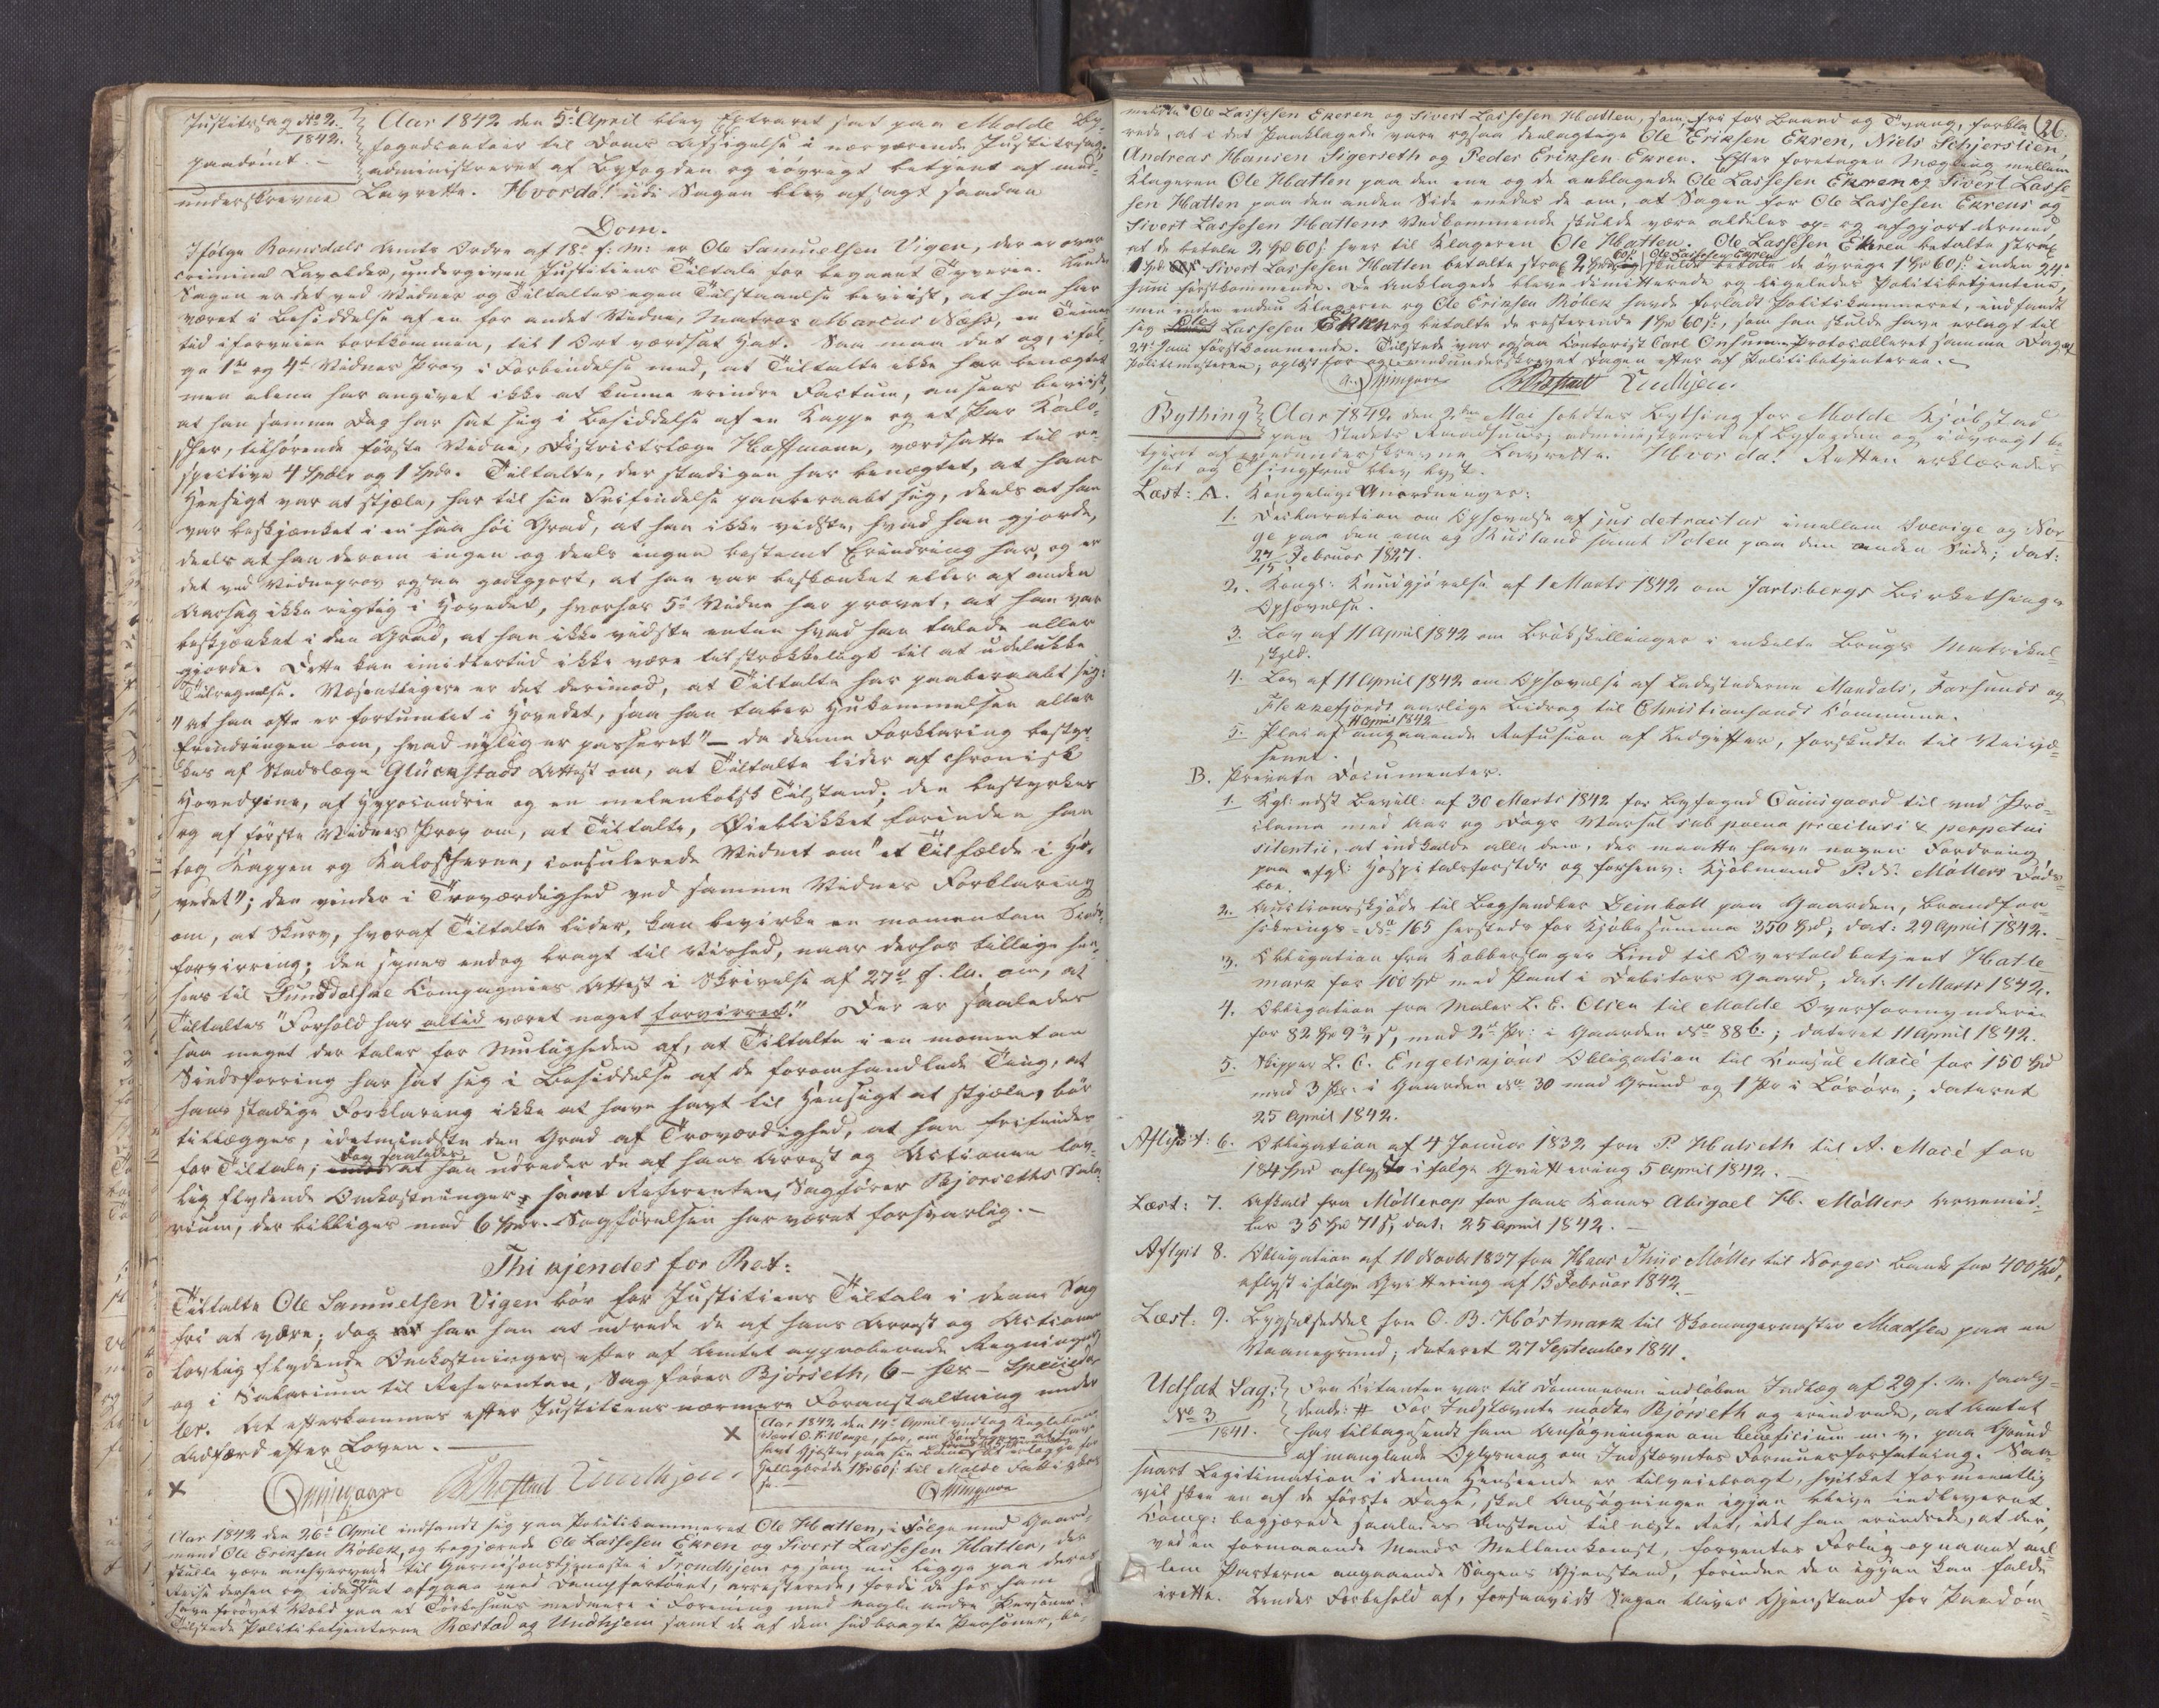 Justitssag No 2.
1842.
paadömt. -
Aar 1842 den 5te April blev Extraret sat paa Molde By-
fogedcontoir til Doms Afsigelse i nærværende Justitssag,
administreret af Byfogden og iövrigt betjent af med-
underskrevne Lavrette. Hvorda! udi Sagen blev afsagt saadan
Dom.
Ifölge Romsdals Amts Ordre af 18de f: M: er Ole Samuelsen Vigen, der er over
criminel Lavalder, undergiven Justitiens Tiltale for begaaet Tyverie. Under
Sagen er det ved Vidner og Tiltaltes egen Tilstaaelse beviist, at han har
været i Besiddelse af en for andet Vidne, Matros Marcus Næss, en Times
tid iforveien bortkommen, til 1 Ort værdsat Hat. Saa maa det og, iföl-
ge 1ste og 4de Vidnes Prov i Forbindelse med, at Tiltalte ikke har benægtet
men alene har angivet ikke at kunne erindre Factum, ansees beviist,
at han samme Dag har sat sig i Besiddelse af en Kappe og et Par Kalo-
scher, tilhörende förste Vidne, Districtslæge Hoffmann, værdsatte til re-
spective 4 Spdlr og 1 Spdr. Tiltalte, der stadigen har benægtet, at hans
Hensigt var at stjæle, har til sin Frifindelse paaberaabt sig, deels at han
var beskjænket i en saa höi Grad, at han ikke vidste, hvad han gjorde,
deels at han derom ingen og deels ingen bestemt Erindring har, og er
det ved Vidneprov ogsaa godtgjort, at han var beskjænket eller af anden
Aarsag ikke rigtig i Hovedet, hvorhos 5te Vidne har provet, at han var
beskjænket i den Grad, at han ikke vidste enten hvad han talede eller
gjorde. Dette kan imidlertid ikke være tilstrækkeligt til at udelukke
Tilregnelse. Væsentligere er det derimod, at Tiltalte har paaberaabt sig:
"at han ofte er fortumlet i Hovedet, saa han taber Hukommelsen eller
Erindringen om, hvad nylig er passeret" - da denne Forklaring bestyr-
kes af Stadslæge Glückstads Attest om, at Tiltalte lider af chronisk
Hovedpine, af Hypocondrie og en melankolsk Tilstand; den bestyrkes
og af förste Vidnes Prov om, at Tiltalte, Öieblikket forinden han
tog Kappen og Kaloscherne, consulerede Vidnet om "et Tilfælde i Ho-
vedet"; den vinder i Troværdighed ved samme Vidnes Forklaring
om, at Skurv, hvoraf Tiltalte lider, kan bevirke en momentan Sinds-
forvirring; den synes endog bragt til Vished, naar derhos tillige hen-
sees til Sunddalske Compagnies Attest i Skrivelse af 27de f. M. om, at
Tiltaltes "Forhold har altid været noget forvirret." Der er saaledes
saa meget der taler for Muligheden af, at Tiltalte i en momentan
Sindsforvirring har sat sig i Besiddelse af de foromhandlede Ting, at
hans stadige Forklaring ikke at have havt til Hensigt at stjæle, bör
tillægges, idetmindste den Grad af Troværdighed, at han frifindes
for Tiltale; dog saaledes at han udreder de af hans Arrest og Actionen lov-
lig flydende Omkostninger, samt Referenten, Sagförer Bjorseths Sala-
rium, der billiges med 6 Spdr. Sagförelsen har været forsvarlig. -
Thi kjendes for Ret:
Tiltalte Ole Samuelsen Vigen bör for Justitiens Tiltale i denne Sag
fri at være; dog har han at udrede de af hans Arrest og Actionen
lovlig flydende Omkostninger, efter af Amtet approberede Regninger,
og i Salarium til Referenten, Sagförer Bjorseth, 6 - sex - Speciesda-
ler. At efterkommes efter Justitiens nærmere Foranstaltning under
Adfærd efter Loven. -
Aar 1842 den 14de April vedtog
til Molde Fattigkas
se. -
Qvinsgaard
Qvinsgaard Ræstad Undhjem
Aar 1842 den 26de April indfandt sig paa Politikammeret Ole Hatlen, i Fölge med Gaard-
mand Ole Eriksen Röbek, og begjærede Ole Lassesen Ekren og Sivert Lassesen Hatlen, der
skulle være anhvervede til Garnisonstjeneste i Trondhjem og som nu ligge paa deres
Reise dertil og idag at afgaae med Dampfartöiet, arresterede, fordi de hos ham
have forövet Vold paa et Törkehuus medmere i Forening med nogle andre Personer.
Tilstede Politibetjenterne Ræstad og Undhjem samt de af dem hidbragte Personer, be-
26.
meldte Ole Lassesen Ekeren og Sivert Lassesen Hatlen, som, fri for Baand og Tvang, forkla-
rede, at i det Paaklagede vare ogsaa deelagtige Ole Eriksen Ekren, Niels Schjerslien,
Andreas Hansen Sigerseth og Peder Eriksen Ekren. Efter foretagen Mægling mellem
Klageren Ole Hatlen paa den ene og de anklagede Ole Lassesen Ekren og Sivert Lasse-
sen Hatlen paa den anden Side enedes de om, at Sagen for Ole Lassesen Ekrens og
Sivert Lassesen Hattens Vedkommende skulde være aldeles op- og afgjort dermed,
at de betale 2 Spd 60 s. hver til Klageren Ole Hatten. Ole Lassesen Ekren betalte strax
1 Spd Sivert Lassesen Hatten betalte strax 2 Spd 60 s. Ole Lassesen Ekren skulde betale de övrige 1 Spd 60 s. inden 24de
Juni förstkommende. De Anklagede bleve dimitterede og ligeledes Politibetjentene,
men inden endnu Klageren og Ole Eriksen Röbek havde forladt Politikammeret, indfandt
sig Ole Lassesen Ekren og betalte de resterende 1 Spd 60 s., som han skulde have erlagt til
24de Juni förstkommende. Tilstede var ogsaa Contorist Carl Onsum. Protocolleret samme Dag af
Politimesteren; oplæst for og medunderskrevet Sagen efter af Politibetjenterne. -
Qvinsgaard Ræstad Undhjem
Bything
Aar 1842 den 2den Mai holdtes Bything for Molde Kjöbstad
paa Stedets Raadhuus; administreret af Byfogden og iövrigt be-
tjent af medunderskrevne Lavrette. Hvorda! Retten erklæredes
sat og Thingfred blev lyst.
Læst: A. Kongelige Anordninger:
1. Declaration om Ophævelse af jus detractus imellem Sverige og Nor-
ge paa den ene og Rusland samt Polen paa den anden Side; dat:
27/15 Februar 1827.
2. Kongl: Kundgjörelse af 1 Marts 1842 om Jarlsbergs Birkethings
Ophævelse.
3. Lov af 11 April 1842 om Brökskillinger i enkelte Brugs Matrikul-
skyld.
4. Lov af 11 April 1842 om Ophævelse af Ladestederne Mandals, Farsunds og
Flekkefjords aarlige Bidrag til Christiansands Commune.
5. Plac: af 11 April 1842 angaaende Refusion af Udgifter, forskudte til Veivæ-
senet.
B. Private Documenter.
1. Kgl: ndst Bevill: af 30 Marts 1842 for Byfoged Qvinsgaard til ved Pro-
clama med Aar og Dags Varsel sub poena præclusi & perpetui
silentii, at indkalde alle dem, der maatte have nogen Fordring
paa afgl: Hospitalsforstdr og forhenv: Kjöbmand P. N. Möllers Döds-
boe.
2. Auctionsskjöde til Boghandler Deinboll paa Gaarden, Brandfor-
sikrings-No 165 hersteds for Kjöbesumma 350 Spd; dat: 29 April 1842.
3. Obligation fra Kobberslager Lind til Overtoldbetjent Hatle-
mark for 100 Spd med Pant i Debitors Gaard, dat: 11 Marts 1842.
4. Obligation fra Maler L. E. Olsen til Molde Overformynderie
for 82 Spd 9 3/4 s, med 2den Pr: i Gaarden No 88 b.; dateret 11 April 1842.
5. Skipper L. C. Engelskjöns Obligation til Konsul Macé for 150 Spd
med 3 Pr: i Gaarden No 30 med Grund og 1 Pr i Lösöre; dateret
25 April 1842.
Aflyst: 6. Obligation af 4 Januar 1832 fra P. Halseth til A. Macé for
184 Spd aflyst ifölge Qvittering 5 April 1842. -
Læst: 7. Afkald fra Möllerop for hans Kones Abigael H. Möllers Arvemid-
ler 35 Spd 71 s, dat: 25 April 1842. -
Aflyst 8. Obligation af 10 Novbr 1837 fra Hans Thiis Möller til Norges Bank for 400 Spd,
aflyst ifölge Qvittering af 15 Februar 1842. -
Læst: 9. Bygselseddel fra O. B. Höstmark til Skomagermester Madsen paa en
Vaanegrund; dateret 27 September 1841.
Udsat Sag:
No 3
1841.
Fra Citanten var til Dommeren indlöben Indlæg af 29 f. m. saaly-
dende: # For Indstævnte mödte Bjorseth og erindrede, at Amtet
har tilbagesendt ham Ansögningen om beneficium m. v. paa Grund
af manglende Oplysning om Indstævntes Formuesforfatning. Saa-
snart Legitimation i denne Henseende er tilveiebragt, hvilket formeentlig
vil skee en af de förste Dage, skal Ansögningen igjen blive indleveret.
Comp: begjærede saaledes Anstand til næste Ret, idet han erindrede, at der,
ved en formaaende Mands Mellemkomst, forventes Forlig opnaaet mel-
lem Parterne angaaende Sagens Gjenstand, forinden den igjen kan falde
irette. Under Forbehold af, forsaavidt Sagen bliver Gjenstand for Paadöm-